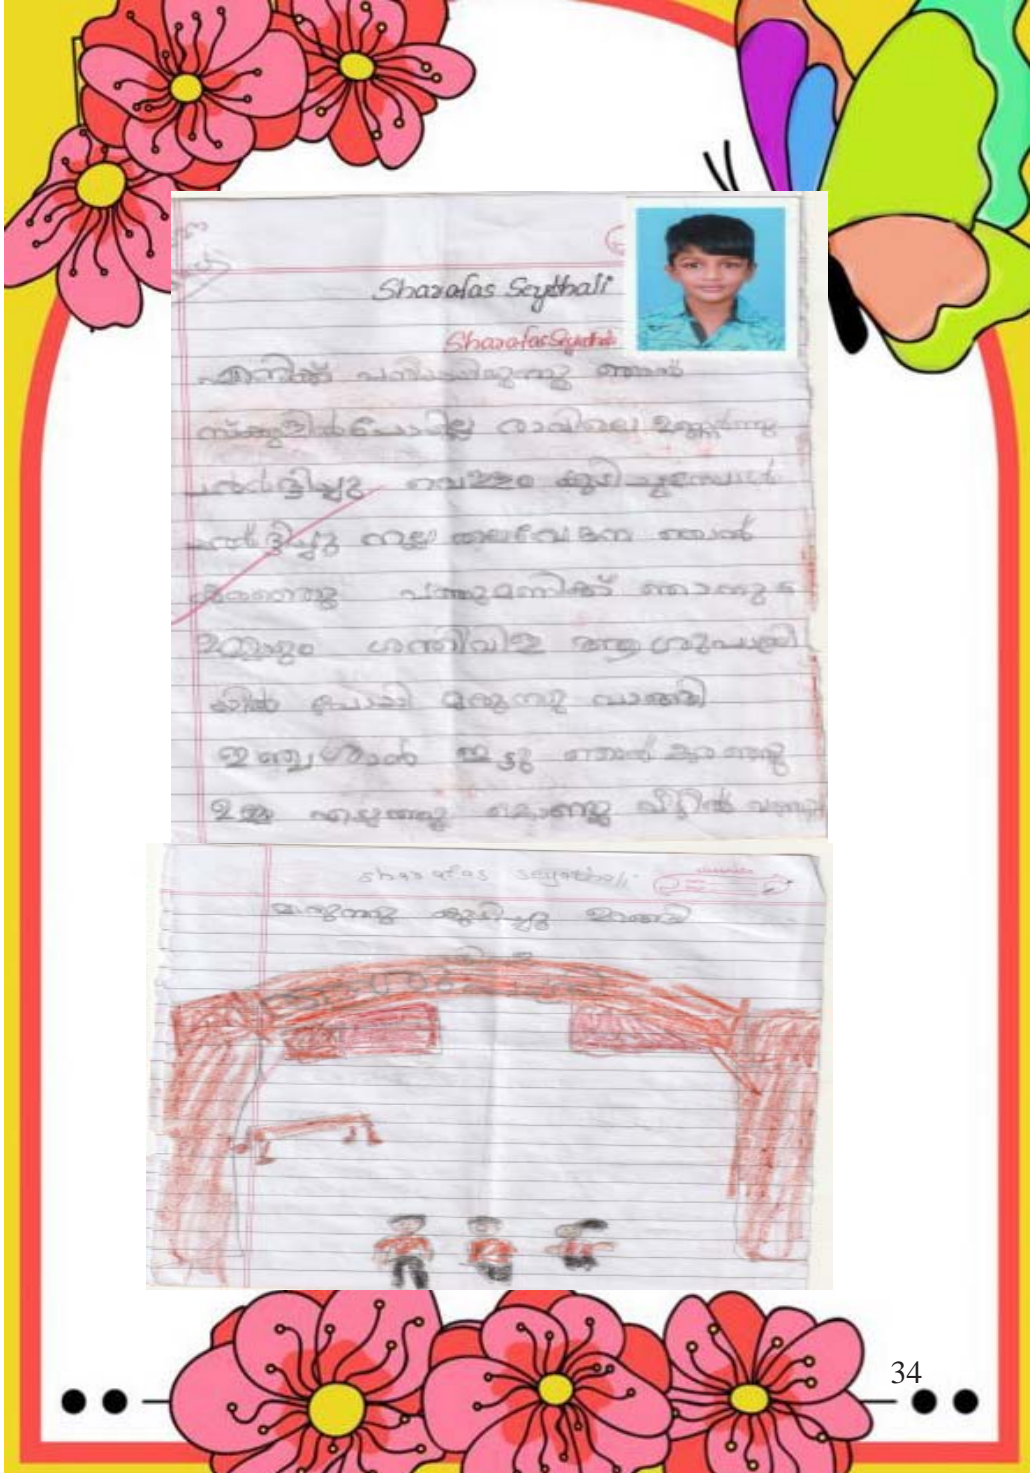 Sharafas Seythali
Sharafas Seyathali
എനിക്ക് പനിയായിരുന്നു ഞാൻ
സ്ക്കൂളിൽ പോയില്ല രാവിലെ ഉണർന്നു
ചർദ്ദിച്ചു വെള്ളം കുടിച്ചപ്പോൾ
ചർദ്ദിച്ചു നല്ല തലവേദന ഞാൻ
കരഞ്ഞു പത്തുമണിക്ക് ഞാനും
ഉമ്മായും ശന്തിവിള ആശുപത്രി
യിൽ പോയി മരുന്നു വാങ്ങി
ഇഞ്ചുശാൻ ഇട്ടു ഞാൻ കരഞ്ഞു
ഉമ്മ എടുത്തു കൊണ്ടു വീട്ടിൽ വന്നു
sharafas seyathali
മരുന്നു കുടിച്ചു ഉറങ്ങി
34